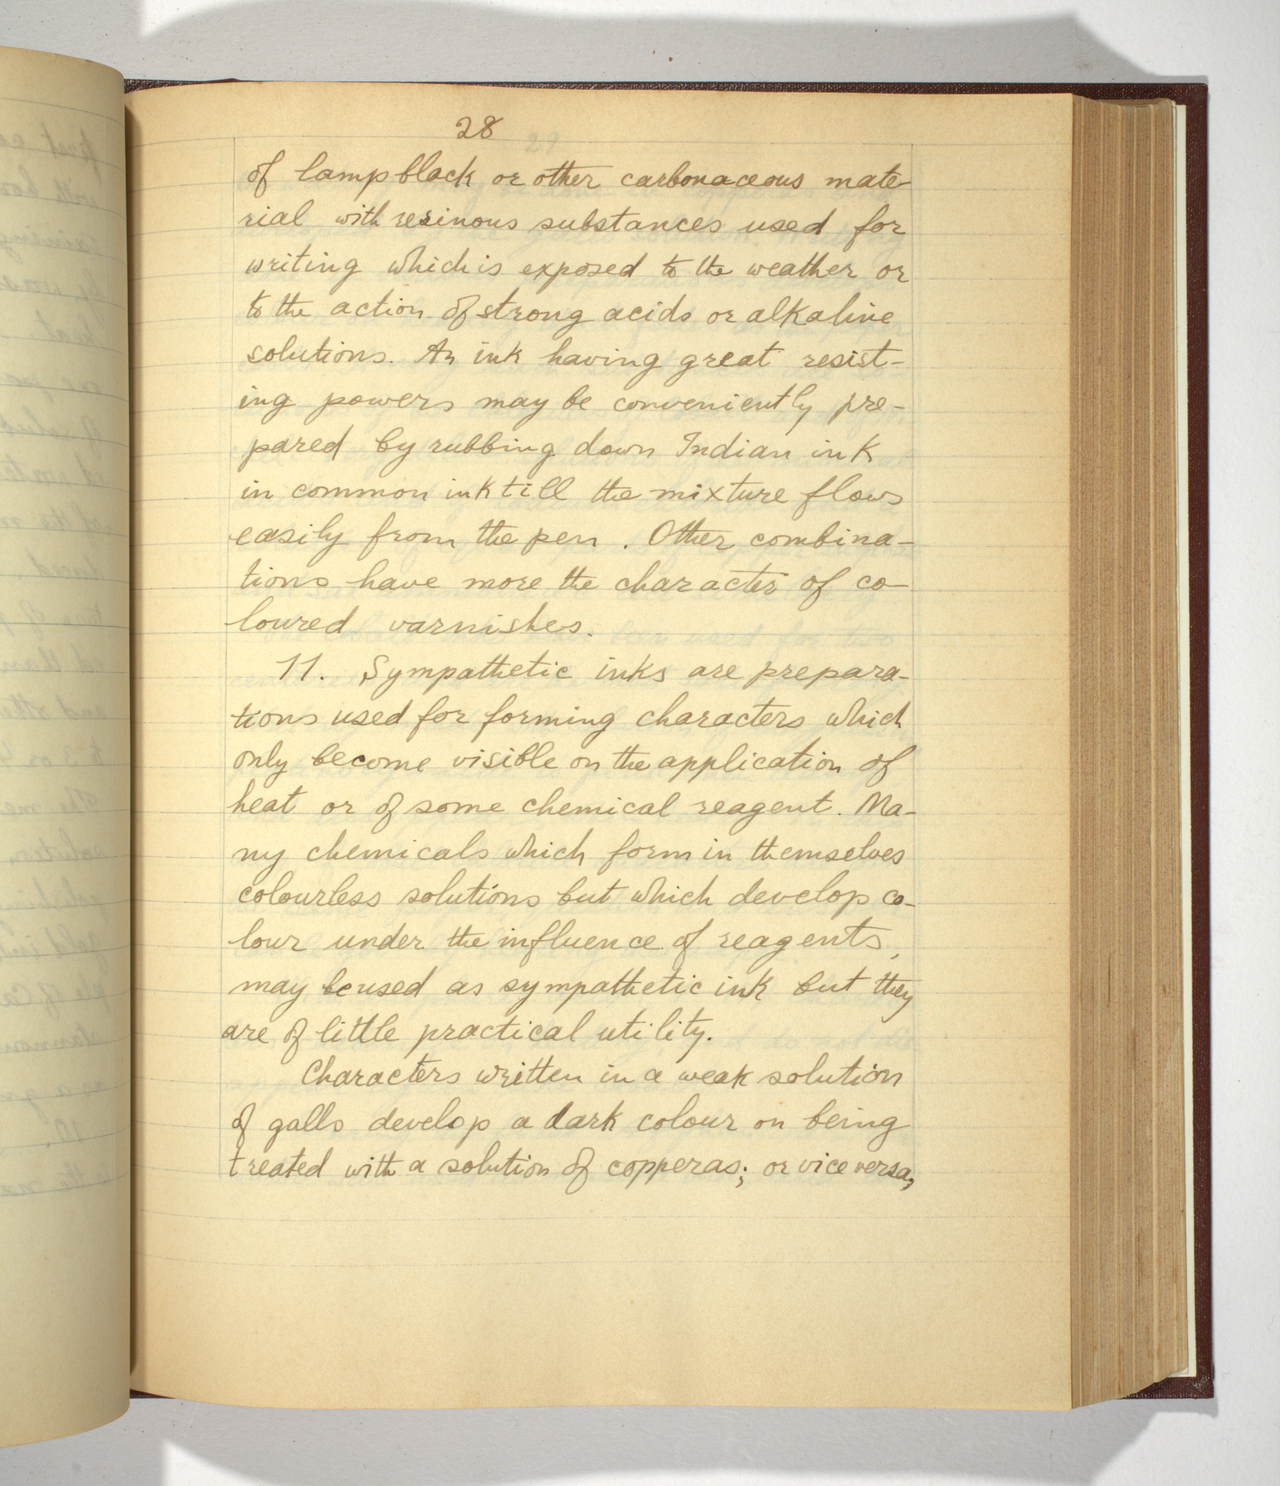 28
of lampblack or other carbonaceous mate-
rial with resinous substances used for
writing which is exposed to the weather or
to the action of strong acids or alkaline
solutions. An ink having great resist-
ing powers may be conveniently pre-
pared by rubbing down Indian ink
in common ink till the mixture flows
easily from the pen. Other combina-
tions have more the character of co-
loured varnishes.
11. Sympathetic inks are prepara-
tions used for forming characters which
only become visible on the application of
heat or of some chemical reagent. Ma-
ny chemicals which form in themselves
colourless solutions but which develop co-
lour under the influence of reagents,
may be used as sympathetic ink but they
are of little practical utility.
Characters written in a weak solution
of galls develop a dark colour on being
treated with a solution of copperas; or vice versa,